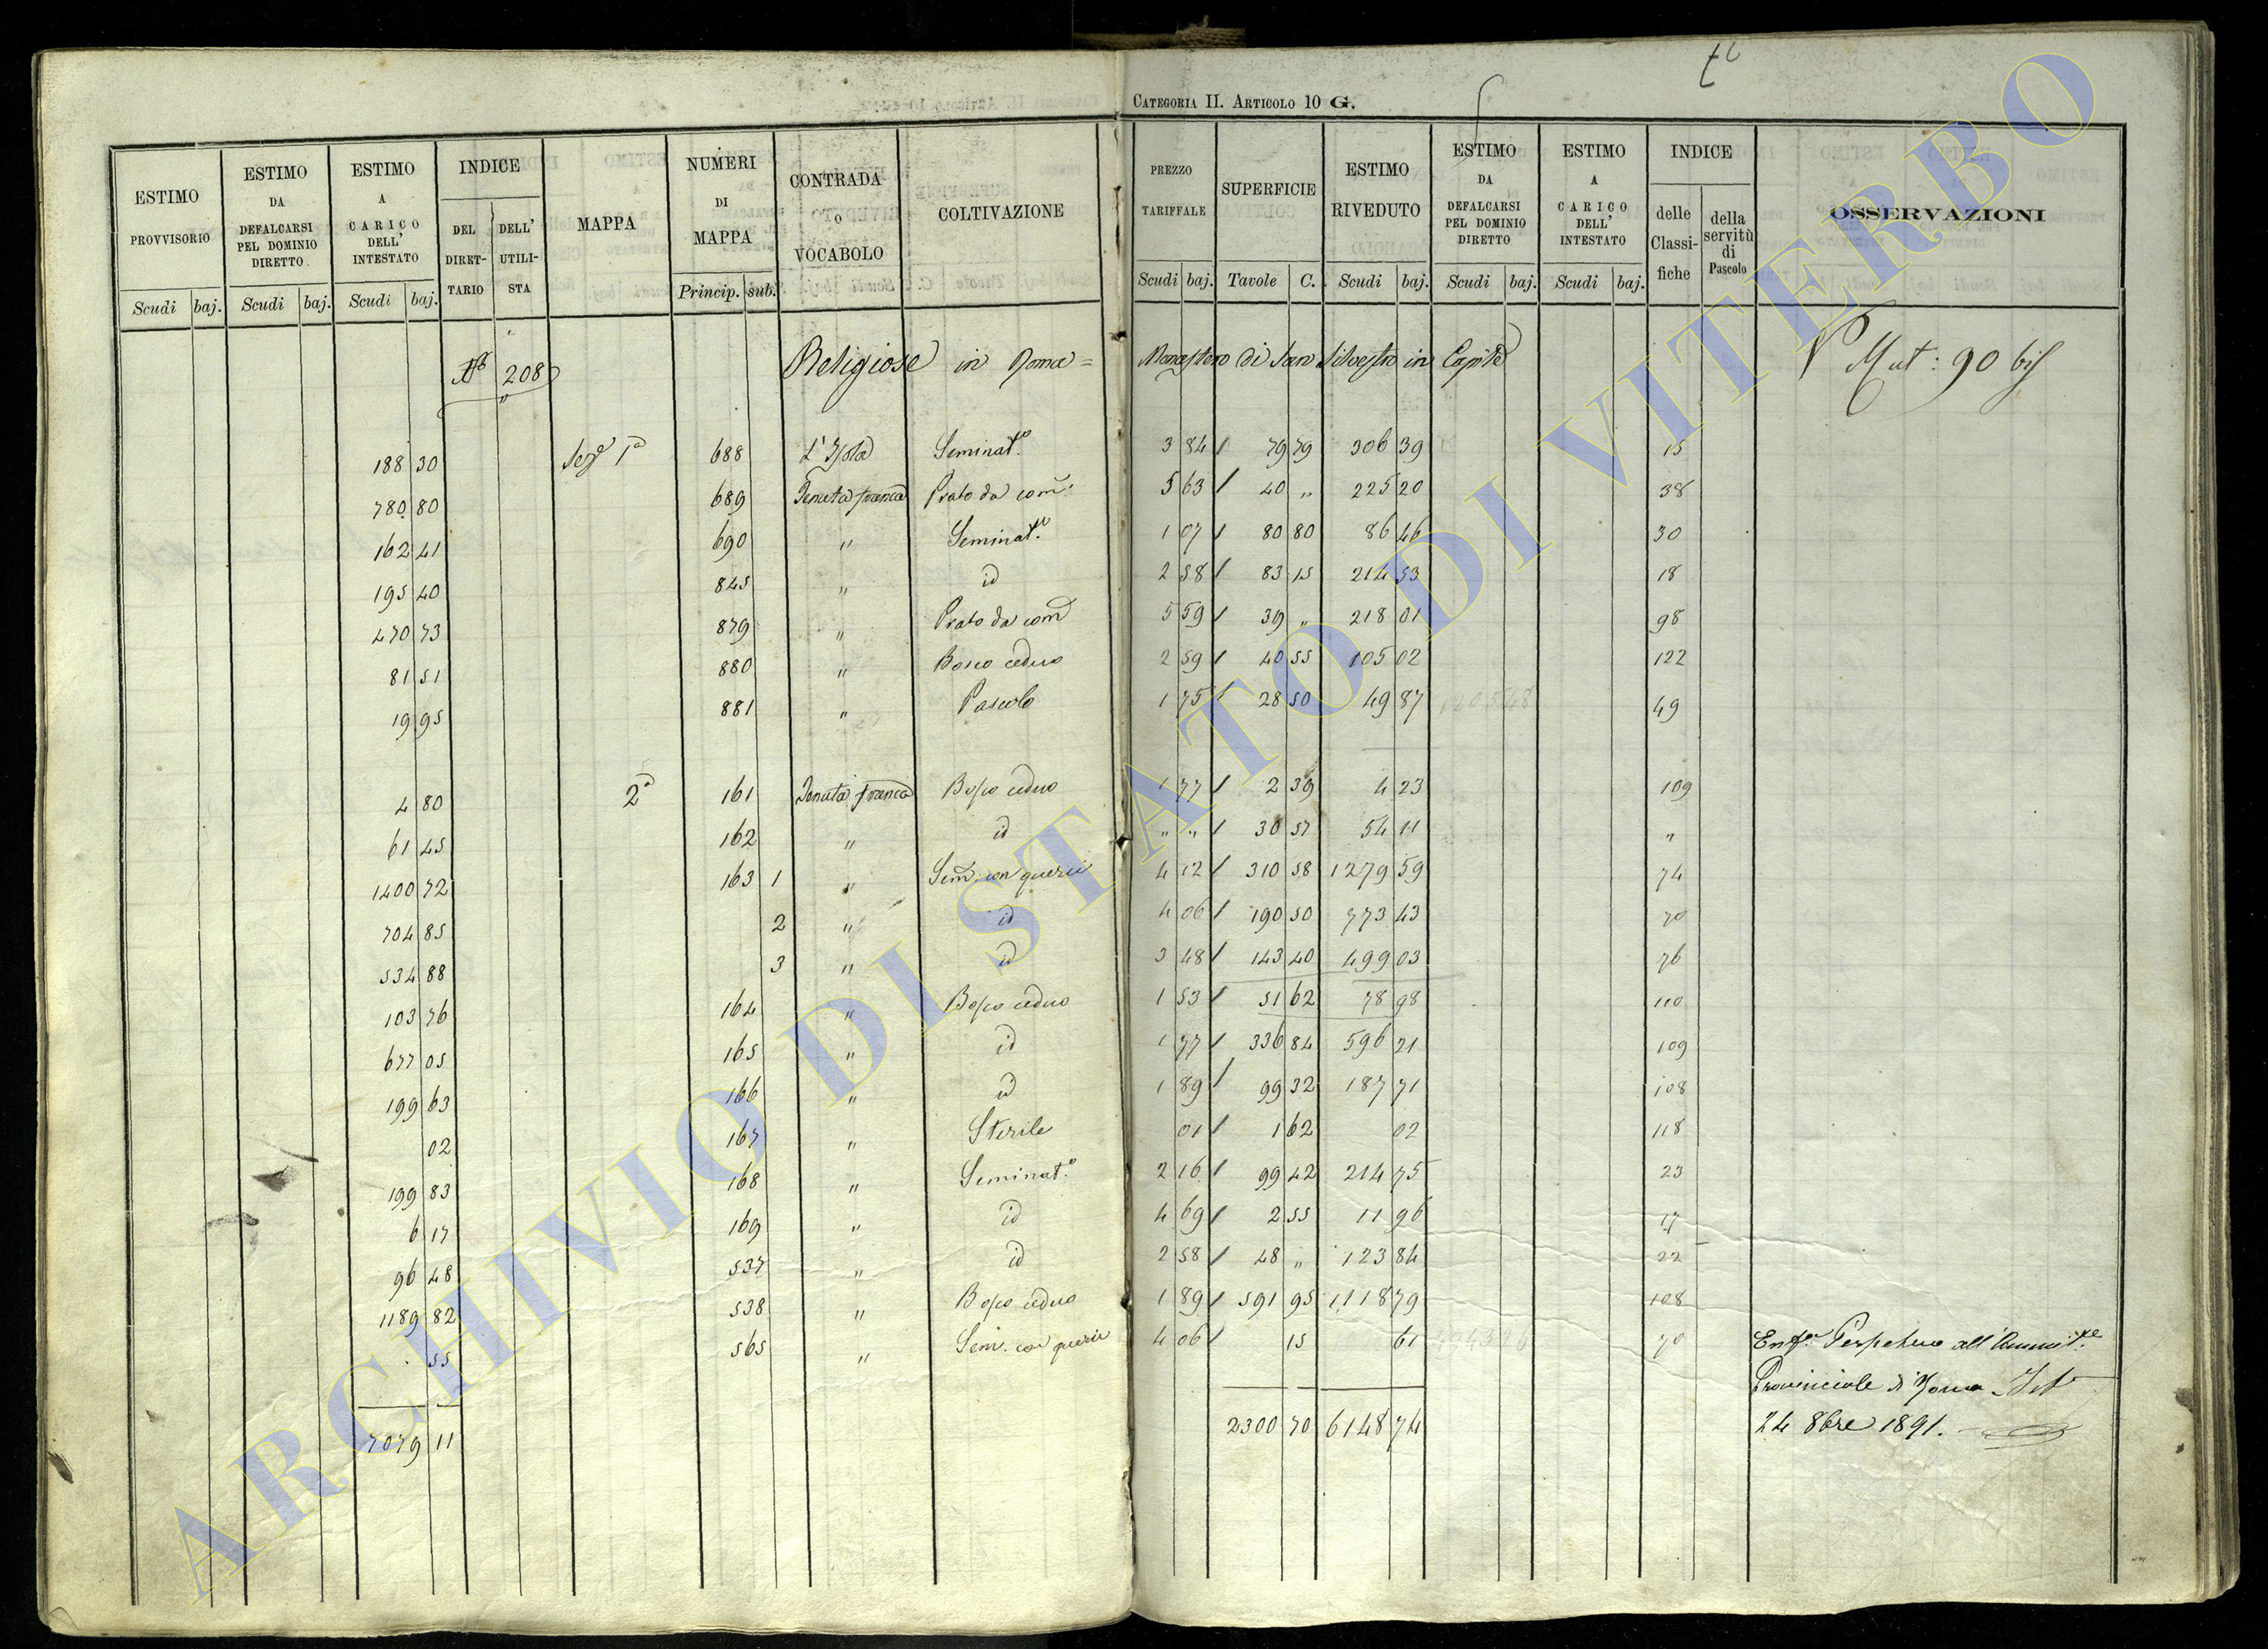 CATEGORIA II. ARTICOLO 10 G.
ESTIMO PROVVISORIO Scudi baj.
ESTIMO DA DEFALCARSI PEL DOMINIO DIRETTO Scudi baj.
ESTIMO A CARICO DELL' INTESTATO Scudi baj.
INDICE DEL DIRETTARIO DELL' UTILISTA
MAPPA
NUMERI DI MAPPA Princip. sub.
CONTRADA O VOCABOLO
COLTIVAZIONE
PREZZO TARIFFALE Scudi baj.
SUPERFICIE Tavole C.
ESTIMO RIVEDUTO Scudi baj.
ESTIMO DA DEFALCARSI PEL DOMINIO DIRETTO Scudi baj.
ESTIMO A CARICO DELL' INTESTATO Scudi baj.
INDICE delle Classifiche della servitù di Pascolo
OSSERVAZIONI
208 Religiose in Roma = Monastero di San Silvestro in Capite Mut: 90 bis
188 30 Sezᵉ 1ᵃ 688 L'Isola Seminatᵒ 3 84 79 79 306 39 15
780 80 689 Tenuta franca Prato da com: 5 63 40 " 225 20 38
162 41 690 " Seminatᵒ 1 07 80 80 86 46 30
195 40 845 " id 2 58 83 15 214 53 18
470 73 879 " Prato da com 5 59 39 " 218 01 98
81 51 880 " Bosco ceduo 2 59 40 55 105 02 122
19 95 881 " Pascolo 1 75 28 50 49 87 49
4 80 2ᵃ 161 Tenuta franca Bosco ceduo 1 77 2 39 4 23 109
61 45 162 " id " " 30 57 54 11 "
1400 72 163 1 " Sem: con querci 4 12 310 58 1279 59 74
704 85 2 " id 4 06 190 50 773 43 70
534 88 3 " id 3 48 143 40 499 03 76
103 76 164 " Bosco ceduo 1 53 51 62 78 98 110
677 05 165 " id 1 77 336 84 596 21 109
199 63 166 " id 1 89 99 32 187 71 108
02 167 " Sterile 01 1 62 02 118
199 83 168 " Seminatᵒ 2 16 99 42 214 75 23
6 17 169 " id 4 69 2 55 11 96 17
96 48 537 " id 2 58 48 " 123 84 22
1189 82 538 " Bosco ceduo 1 89 591 95 1118 79 108
55 565 " Sem: con querci 4 06 15 61 70 Enfᵃ Perpetua all'
Provinciale di Roma
7079 11 2300 70 6148 74 24 8bre 1891.
ARCHIVIO DI STATO DI VITERBO